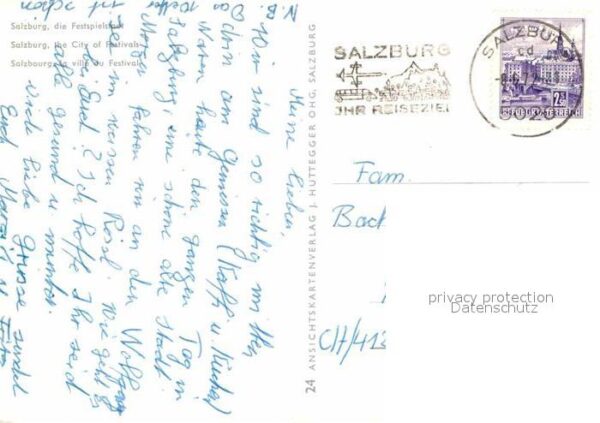 Salzburg, die Festspielstadt
Salzburg, the City of Festivals
Salzbourg, la ville du Festival
24 ANSICHTSKARTENVERLAG J. HUTTEGGER OHG, SALZBURG
SALZBURG
IHR REISEZIEL
SALZBURG
5020
2S
REPUBLIK ÖSTERREICH
Fam.
Bach
CH/413
privacy protection
Datenschutz
Meine Lieben,
Wir sind so richtig mitten
drin am Geniessen (Kaffi u. Kuchen)
Waren heute den ganzen Tag in
Salzburg, eine schöne alte Stadt.
Morgen fahren wir an den Wolfgang
see im weissen Rössl. Wie geht es
Euch? Ich hoffe Ihr seid
alle gesund u. munter.
Viele liebe Grüsse sendet
Euch
N.B.
Das Wetter
ist schön